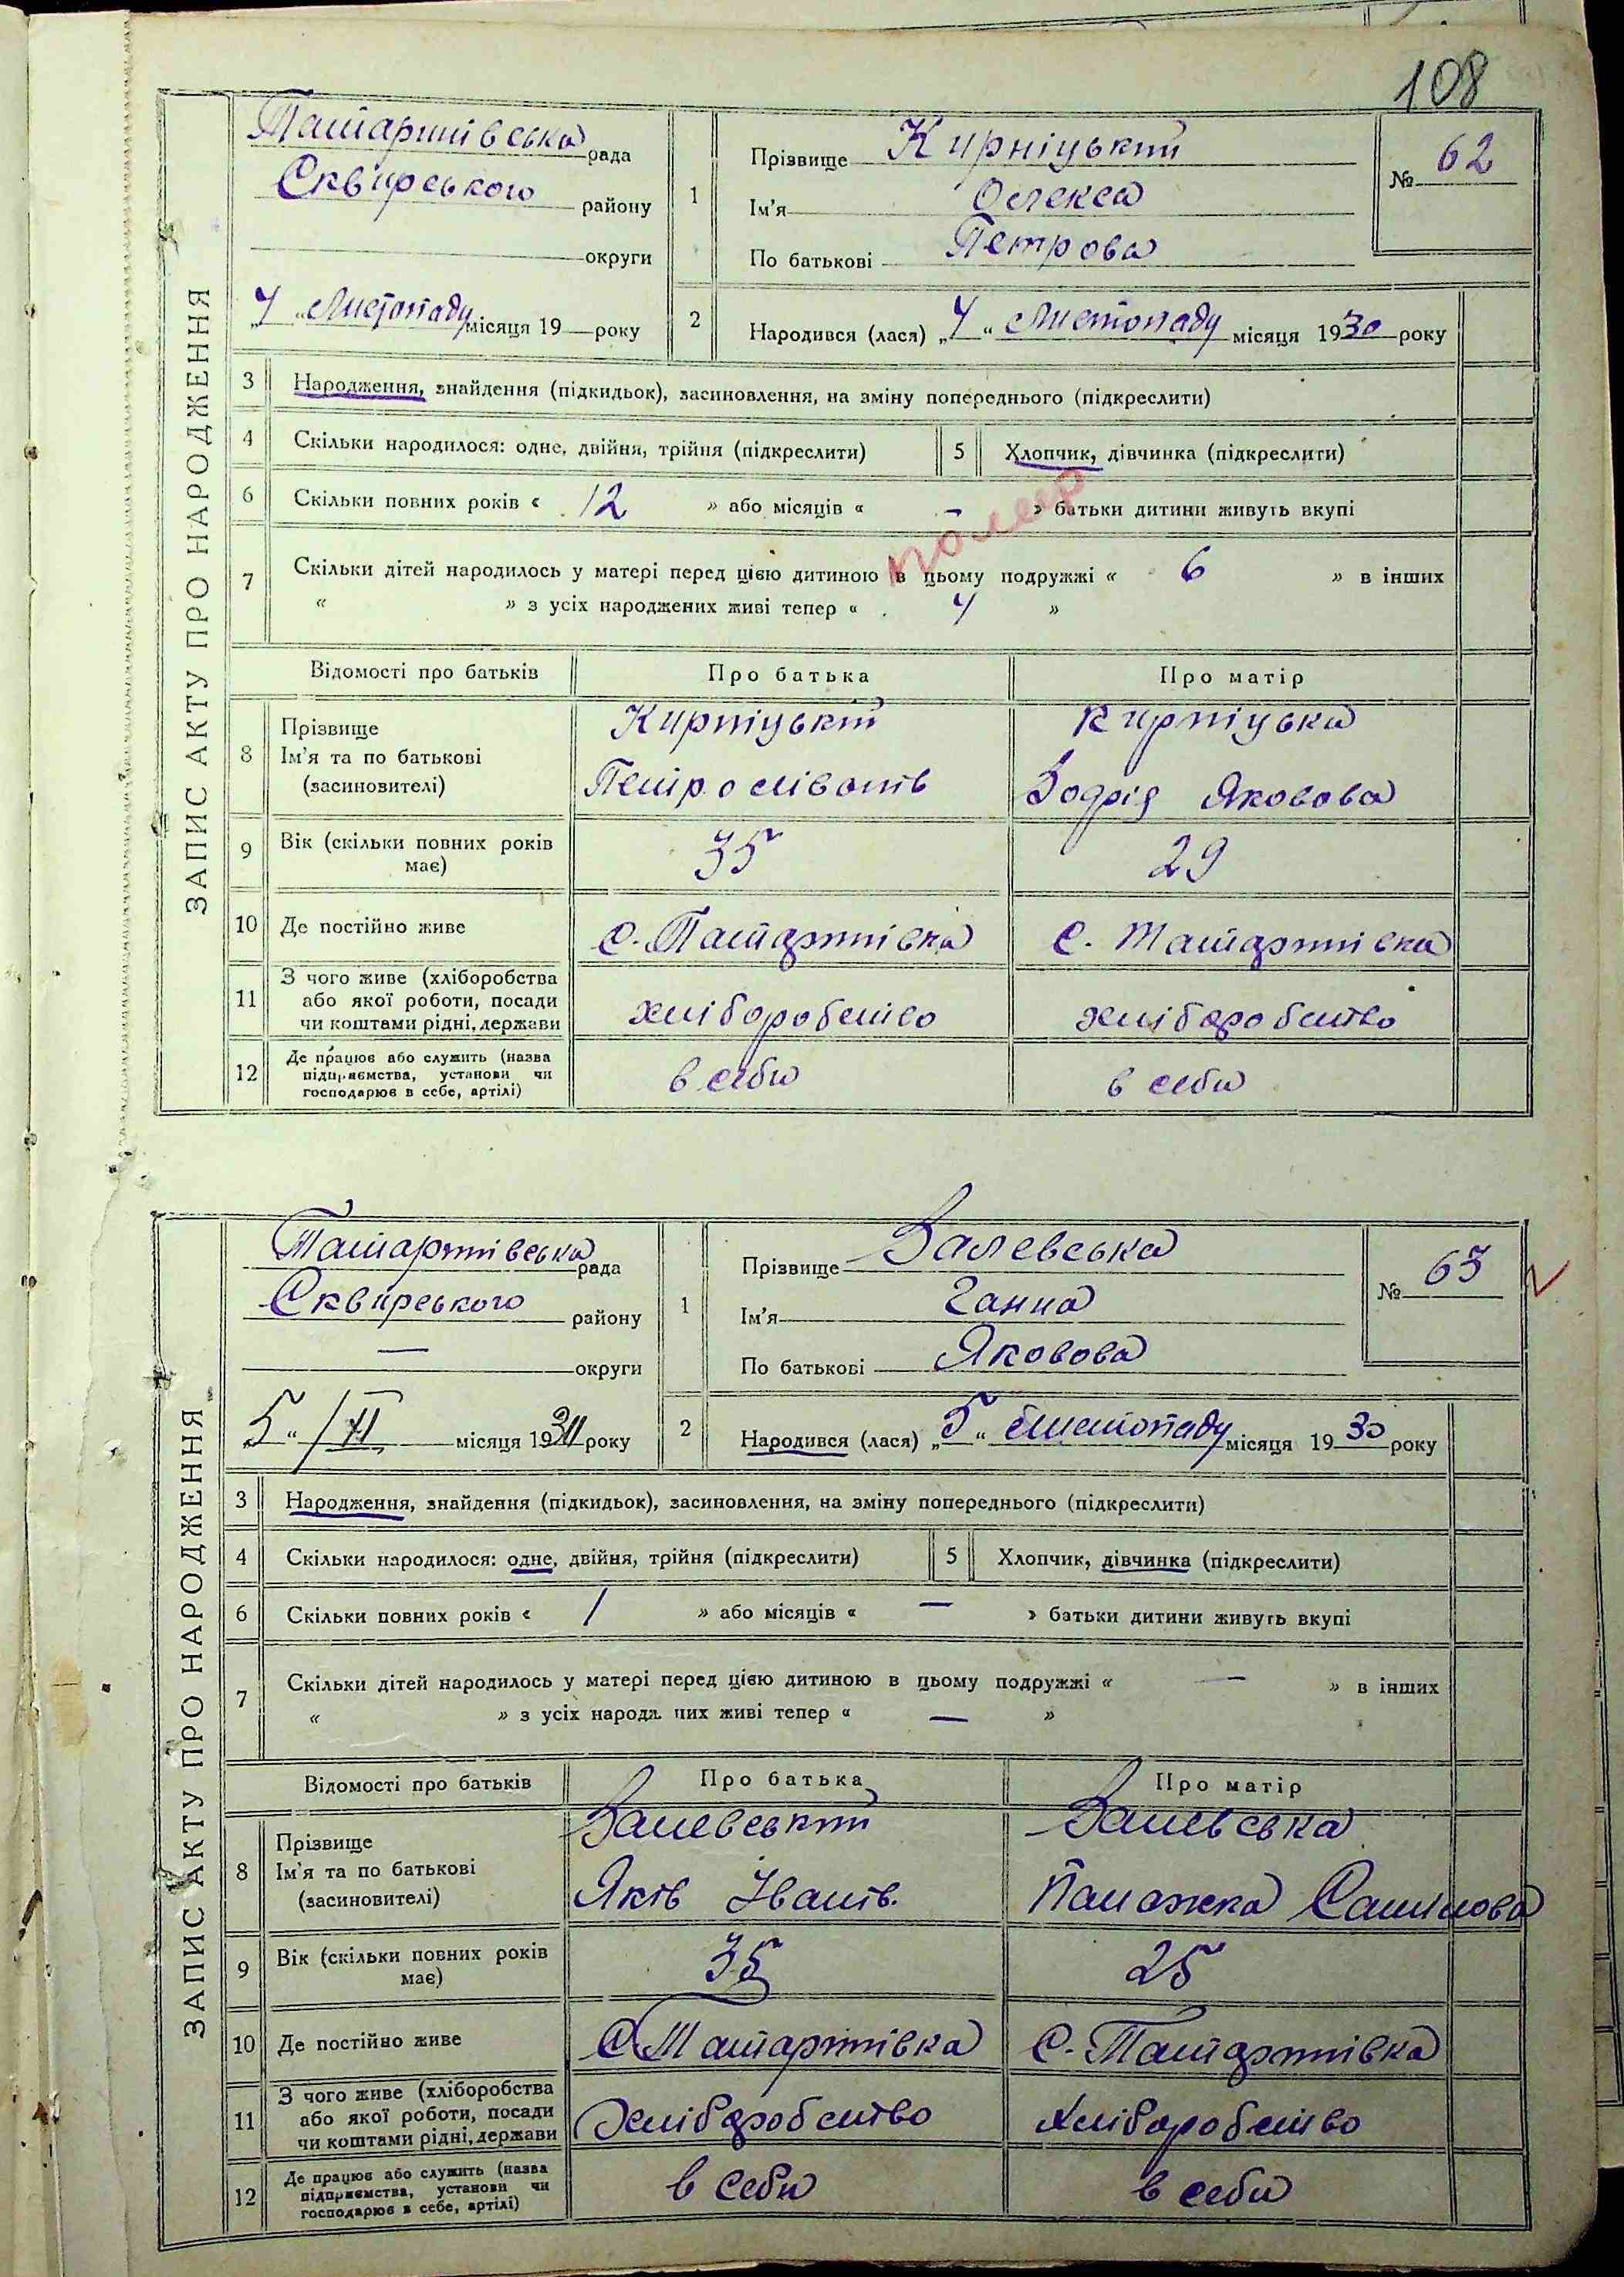 108
ЗАПИС АКТУ ПРО НАРОДЖЕННЯ
Татаринівська рада
Сквирського району
округи
„4“ Листопаду місяця 19 — року
1
Прізвище Кирніцький
Ім'я Олекса
По батькові Петрова
№ 62
2
Народився (лася) „4“ Листопаду місяця 1930 року
3 Народження, знайдення (підкидьок), засиновлення, на зміну попереднього (підкреслити)
4 Скільки народилося: одне, двійня, трійня (підкреслити) 5 Хлопчик, дівчинка (підкреслити)
6 Скільки повних років « 12 » або місяців « – » батьки дитини живуть вкупі
помер
7 Скільки дітей народилось у матері перед цією дитиною в цьому подружжі « 6 » в інших
« » з усіх народжених живі тепер « 4 »
Відомості про батьків Про батька Про матір
8 Прізвище Кирніцький Кирніцька
Ім'я та по батькові
(засиновителі) Петро Яковова
9 Вік (скільки повних років має) 35 29
10 Де постійно живе с. Татаринівка с. Татаринівка
11 З чого живе (хліборобства
або якої роботи, посади
чи коштами рідні, держави хліборобство хліборобство
12 Де працює або служить (назва
підприємства, установи чи
господарює в себе, артілі) в себи в себи
ЗАПИС АКТУ ПРО НАРОДЖЕННЯ
Татаринівська рада
Сквирського району
— округи
„5“ /XI місяця 19 року
1
Прізвище Залевська
Ім'я Ганна
По батькові Яковова
№ 63
2
Народився (лася) „5“ Листопаду місяця 1930 року
3 Народження, знайдення (підкидьок), засиновлення, на зміну попереднього (підкреслити)
4 Скільки народилося: одне, двійня, трійня (підкреслити) 5 Хлопчик, дівчинка (підкреслити)
6 Скільки повних років « 1 » або місяців « — » батьки дитини живуть вкупі
7 Скільки дітей народилось у матері перед цією дитиною в цьому подружжі « — » в інших
« » з усіх народжених живі тепер « — »
Відомості про батьків Про батька Про матір
8 Прізвище Залевський Залевська
Ім'я та по батькові
(засиновителі) Яків Іванів.
9 Вік (скільки повних років має) 35 25
10 Де постійно живе С. Татаринівка С. Татаринівка
11 З чого живе (хліборобства
або якої роботи, посади
чи коштами рідні, держави Хліборобство Хліборобство
12 Де працює або служить (назва
підприємства, установи чи
господарює в себе, артілі) в себи в себи